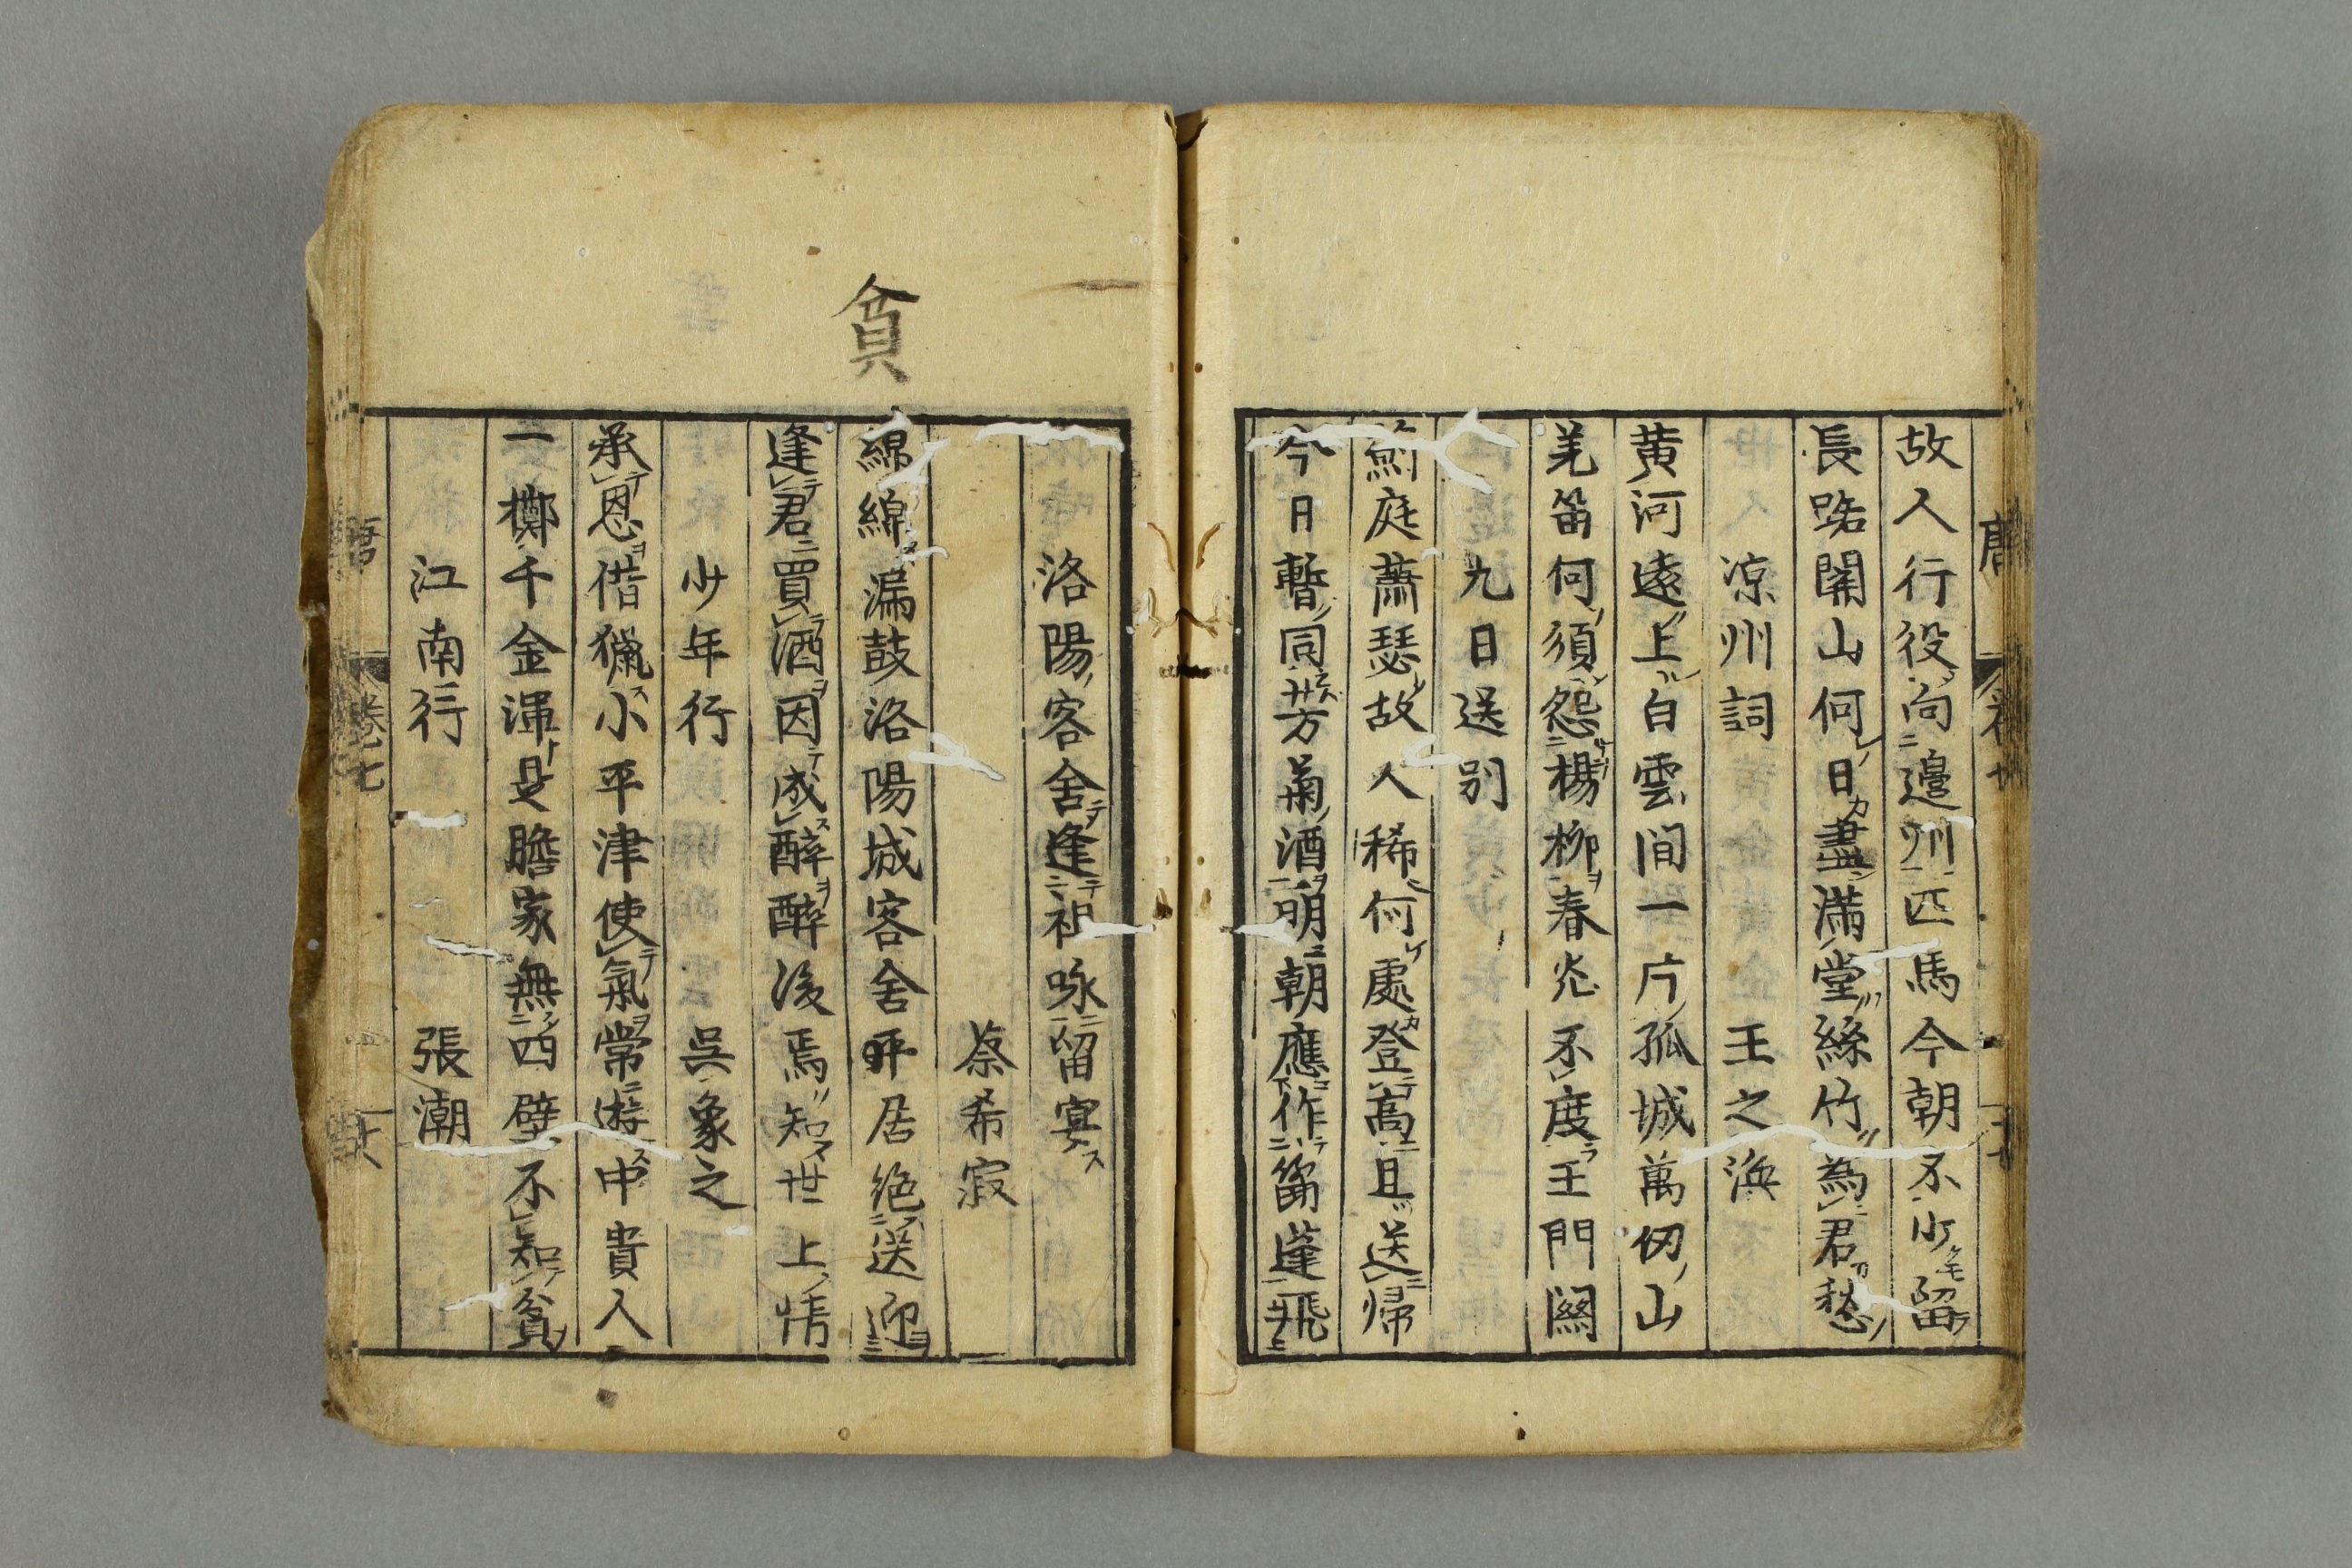 故人行役向邉州匹馬今朝不少留
長路關山何日盡滿堂絲竹為君愁
凉州詞 王之渙
黄河遠上白雲間一片孤城萬仞山
羌笛何須怨楊柳春光不度玉門關
九日送別
薊庭蕭瑟故人稀何處登高且送帰
今日暫同芳菊酒明朝應作斷蓬飛
貧
洛陽客舍逢祖咏留宴
蔡希寂
綿綿漏鼓洛陽城客舍平居絶送迎
逢君買酒因成醉醉後焉知世上情
少年行 吳象之
承恩借獵小平津使氣常遊中貴人
一擲千金渾是膽家無四壁不知貧
江南行 張潮
唐 卷七